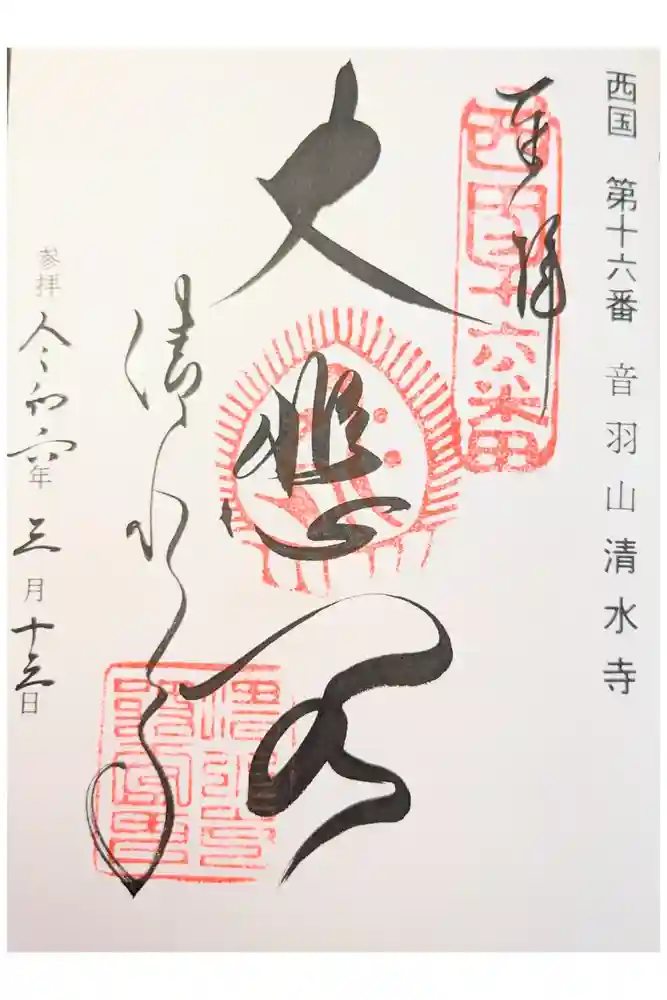 西国 第十六番 音羽山清水寺
奉拝
西国十六番
大悲閣
清水寺
参拝 令和六年三月十三日